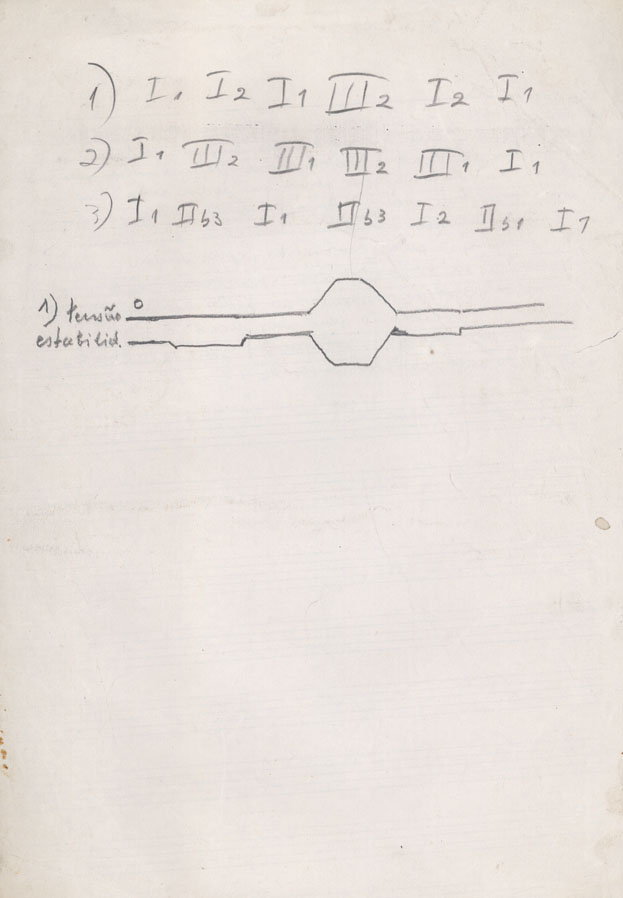 1) I1 I2 I1 III2 I2 I1
2) I1 III2 III1 III2 III1 I1
3) I1 IIb3 I1 IIb3 I2 IIb1 I1
1) tensão 0
estabilid.